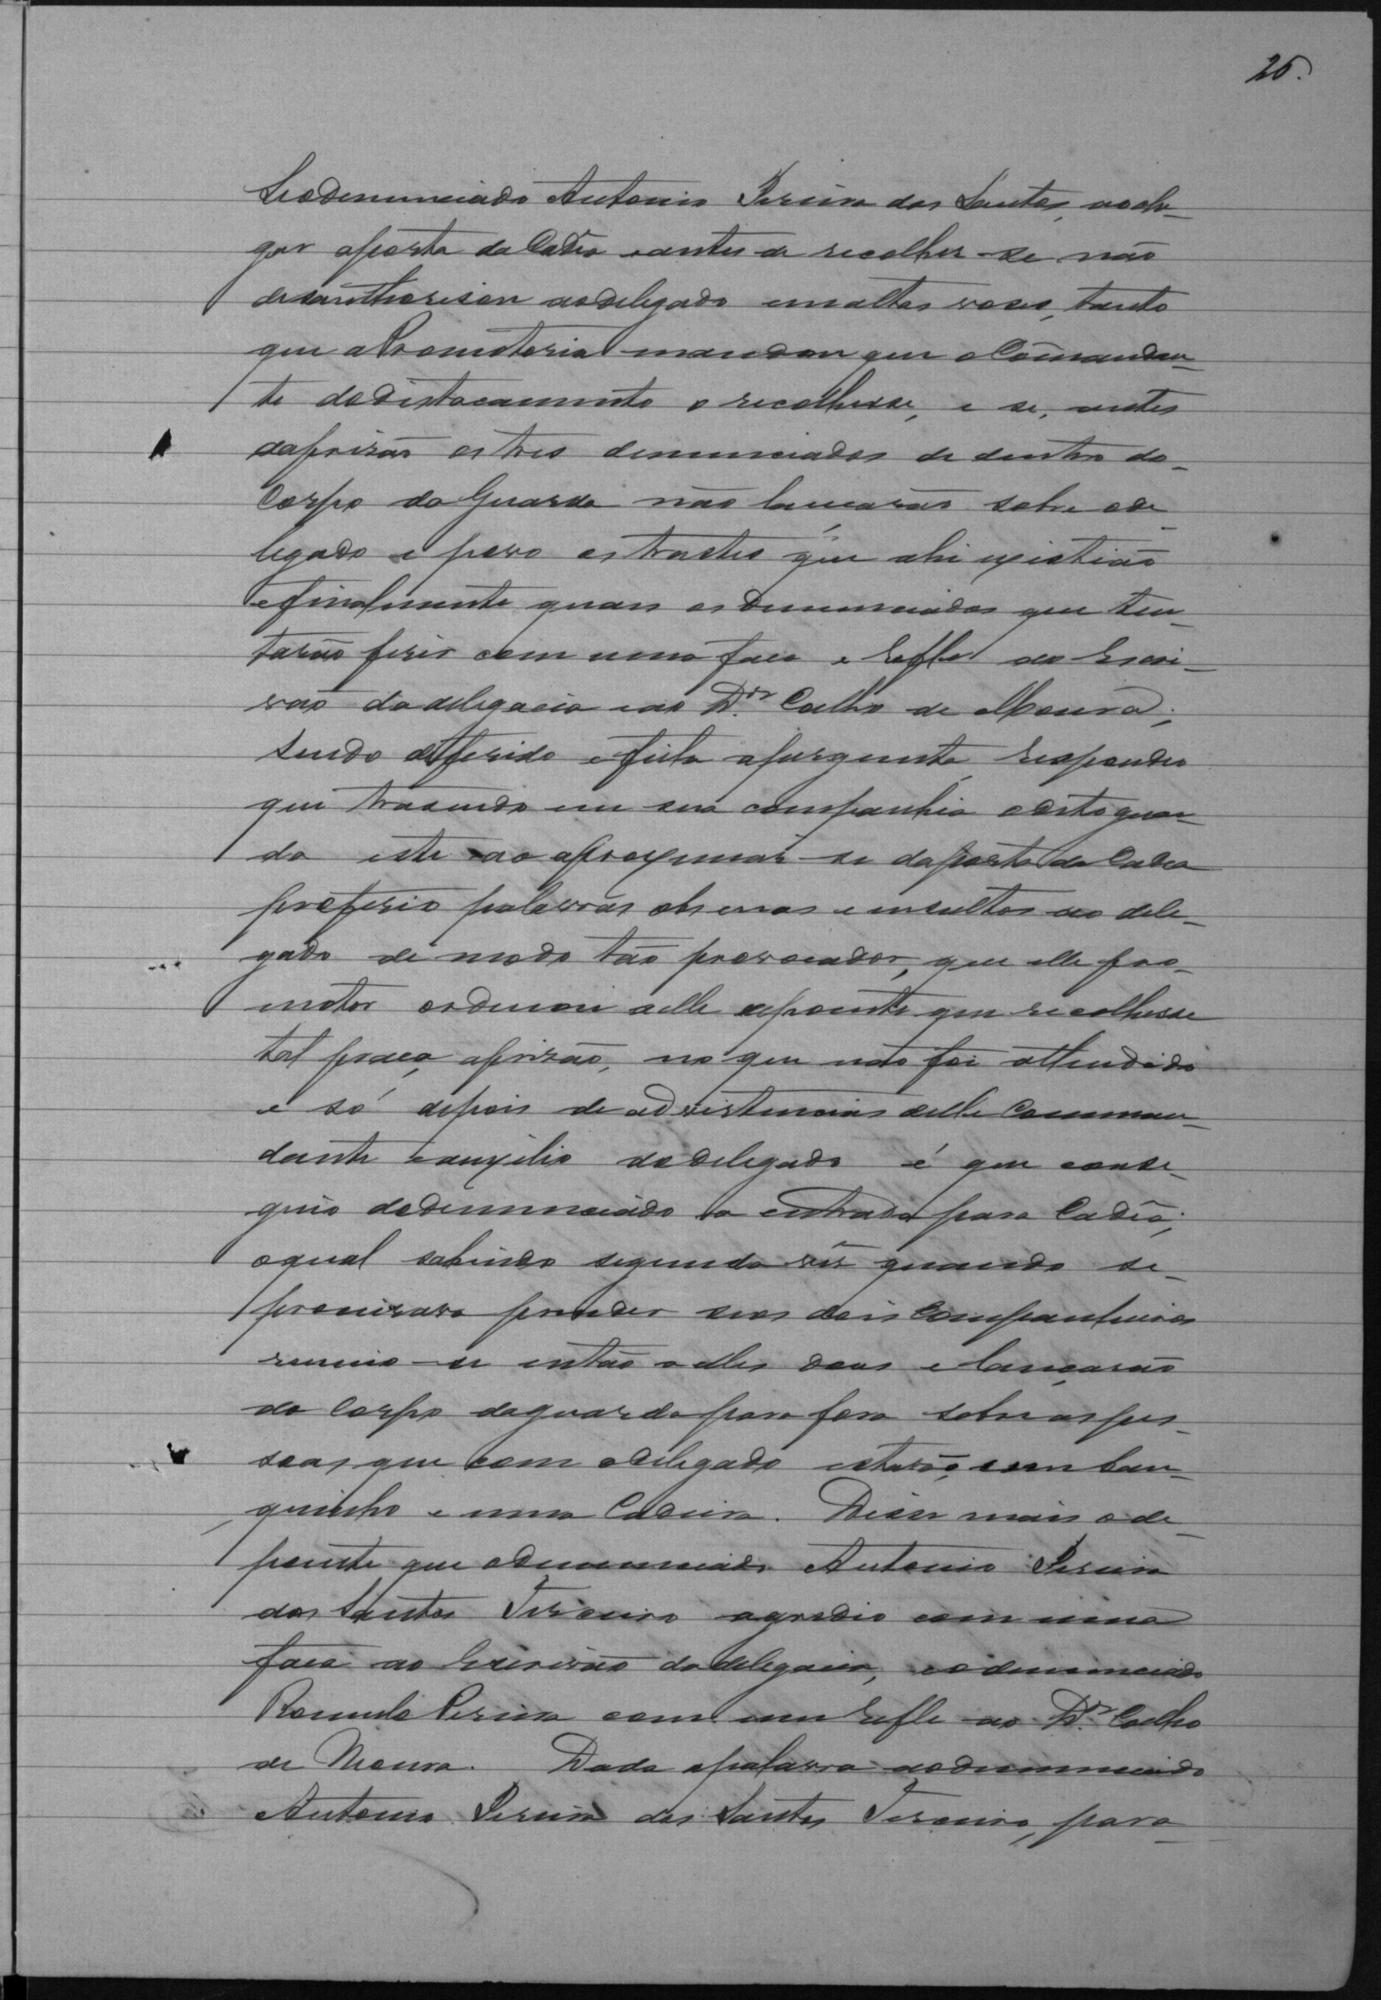 26.
Se o denunciado Antonio Pereira dos Santos, ao che-
gar a porta da Cadêa e antes de recolher-se não
desauthorisou ao delegado em altas vozes, tanto
que a Promotoria mandou que o Comandan-
te do distacamento o recolhesse, e se, antes
da prizão os tres denunciados de dentro do
Corpo da Guarda não lançarão sobre o de-
legado e povo os trastes que ahi existião
e finalmente quaes os denunciados que ten-
tarão ferir com uma faca e refle ao Escri-
vão da delegacia e ao Dr. Coelho de Moura;
sendo deferido e feita a pergunta, respondeo
que trasendo em sua companhia
este ao aproximar-se da porta da Cadea
proferio palavras obcenas e insultos ao dele-
gado de modo tão provocador, que elle pro-
motor ordenou a elle depoente que recolhesse
tal praça, a prizão, no que não foi attendido
e só depois de adevistencias delle Comman-
dante e auxilio do delegado é que conse-
guio do denunciado a entrada para Cadêa;
o qual sahindo segunda vez quando se
procurava prender seos dois companheiros
reunio-se então a elles dous e lançarão
do Corpo da guarda para fora sobre as pes-
soas que com o delegado estavão, um ban-
quinho e uma Cadeira. Disse mais o de-
poente que o denunciado Antonio Pereira
dos Santos Terceiro agredio com uma
faca ao Escrivão da delegacia, e o denunciado
Romulo Pereira com um refle ao Dr. Coelho
de Moura. Dada a palavra ao denunciado
Antonio Pereira dos Santos Terceiro, para